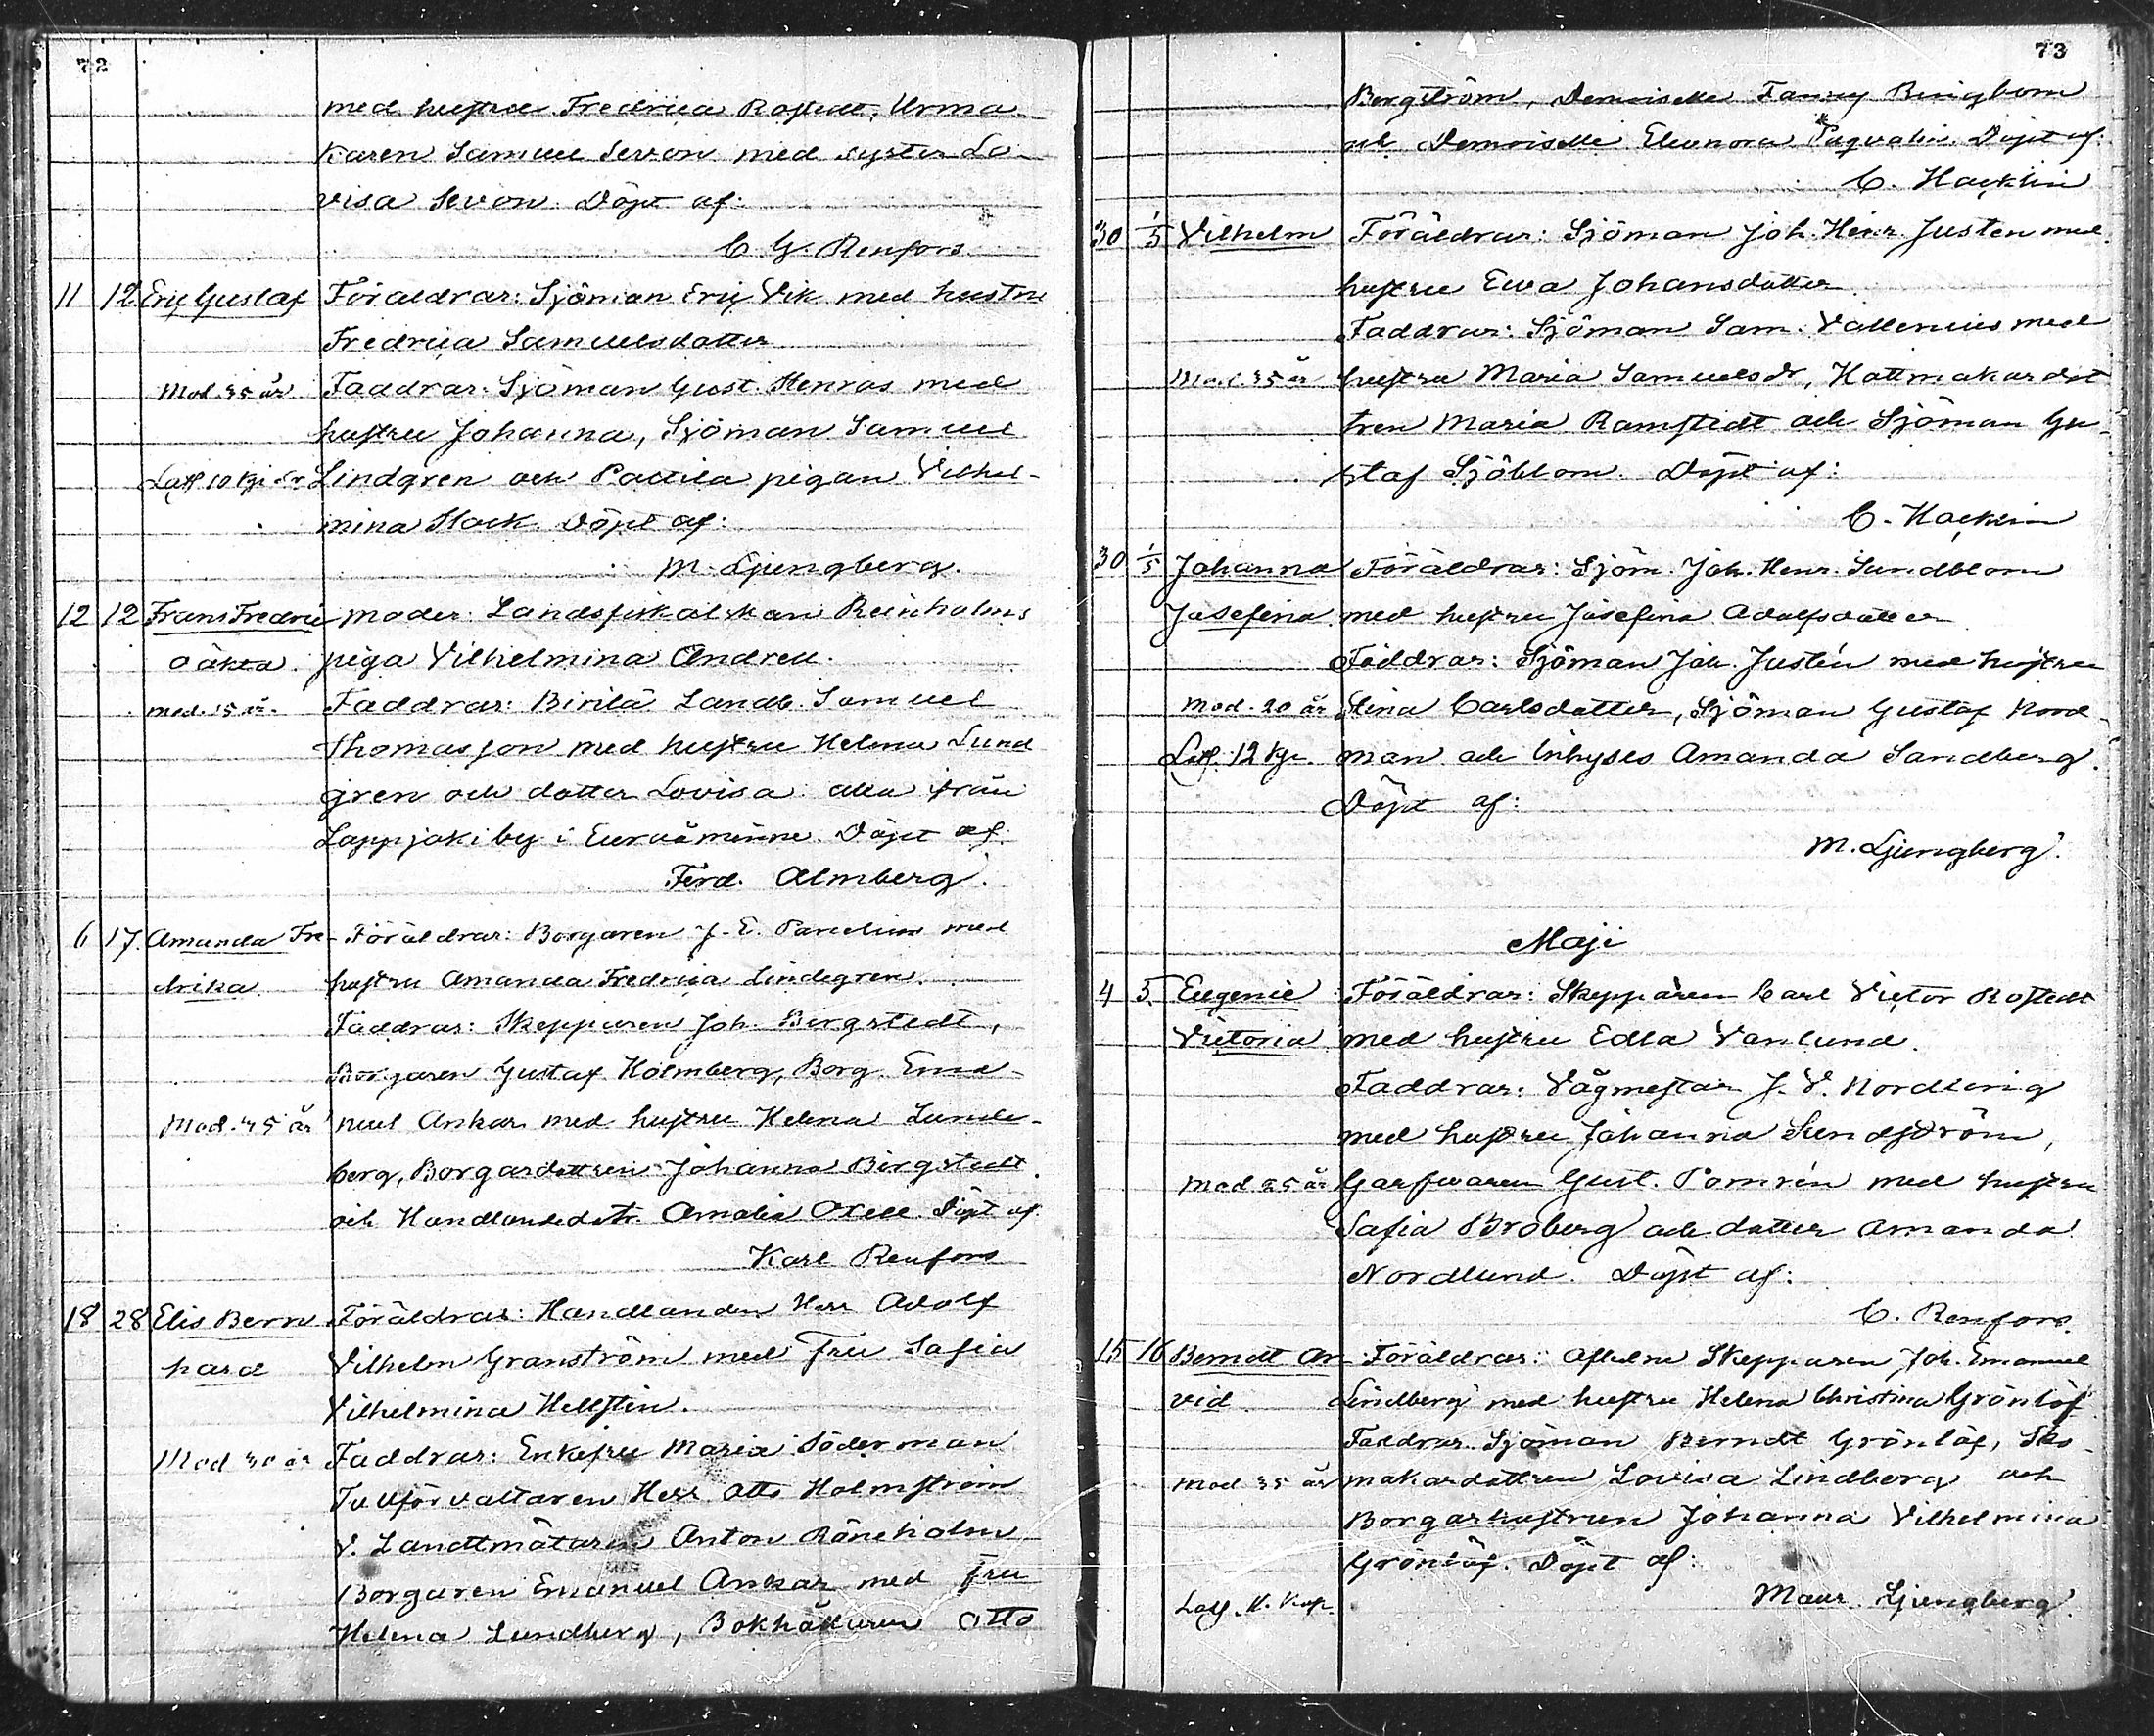 72
med hustru Fredrica Rostedt, Urma
karen Samuel Sevon med syster Lo-
visa Sevon Döpt af:
C. G. Renfors
11 12 Eric Gustaf Föräldrar: Sjöman Eric Vik med hustru
Fredrica Samuelsdotter
Mod. 35 år Faddrar: Sjöman Gust. Henras med
hustru Johanna, Sjöman Samuel
10 Lindgren och pigan Vilhel-
mina Döpt af:
M. Ljungberg.
12 12 Frans Fredric Moder: Landsfiskalskan Reinholms
oäkta piga Vilhelmina Andrell.
mod. 15 år Faddrar: Birilä Landb. Samuel
Thomasson med hustru Helena Lund
gren och dotter Lovisa alla från
Lappjoki by i Euraåminne. Döpt af.
Ferd. Almberg.
6 17. Amanda Fre- Föräldrar: Borgaren J. E. Panelius med
drika hustru Amanda Fredrica Lindegren.
Faddrar: Skepparen Joh. Bergstedt,
Borgaren Gustaf Holmberg, Borg. Ema-
Mod. 35 år nuel Ankar med hustru Helena Lunde-
berg, Borgardottren Johanna Bergstedt
och Handlandedotr. Amalia Oxell Döpt af.
Karl Renfors
18 28 Elis Bern Föräldrar: Handlanden Herr Adolf
hard Vilhelm Granström med Fru Sofia
Vilhelmina Hellsten.
Mod 30 år Faddrar: Enkefru Maria Söderman
Tullförvaltaren Herr Otto Holmström
V. Landtmätaren Anton Röneholm
Borgaren Emanuel Ankar med Fru
Helena Lundberg, Bokhållaren Otto
73
Bergström, Demoiselle Fanny Bergbom
och Demoiselle Eleonora Paqvalin. Döpt af.
C. Hacklin
30 1/5 Vilhelm Föräldrar: Sjöman Joh. Henr. Justen med
hustru Eva Johansdotter
Faddrar: Sjöman Sam. Vallenius med
Mod. 35 år hustru Maria Samuelsdr, Hattmakardot
tren Maria Ramstedt och Sjöman Gu-
staf Sjöblom. Döpt af:
C. Hacklin
30 1/5 Johanna Föräldrar: Sjöm. Joh. Henr. Sundblom
Josefina med hustru Josefina Adolfsdotter
Faddrar: Sjöman Joh. Justén med hustru
Mod. 20 år Stina Carlsdotter, Sjöman Gustaf Nord-
12 man och Inhyses Amanda Sandberg.
Döpt af:
M. Ljungberg.
Maji
4 5. Eugenie Föräldrar: Skepparen Carl Victor Rostedt
Victoria med hustru Edla Vanlund.
Faddrar: Vågmestar J. V. Nordling
med hustru Johanna Sundström,
Mod. 25 år Garfvaren Gust. Pomrén med hustru
Sofia Broberg och dotter Amanda
Nordlund. Döpt af:
C. Renfors.
15 16 Berndt Ar- Föräldrar: Aflidne Skepparen Joh. Emanuel
vid Lindberg med hustru Helena Christina Grönlöf
Faddrar. Sjöman Berndt Grönlöf, Sko-
Mod. 35 år makardottren Lovisa Lindberg och
Borgarhustrun Johanna Vilhelmina
Grönlöf. Döpt af:
Maur. Ljungberg.